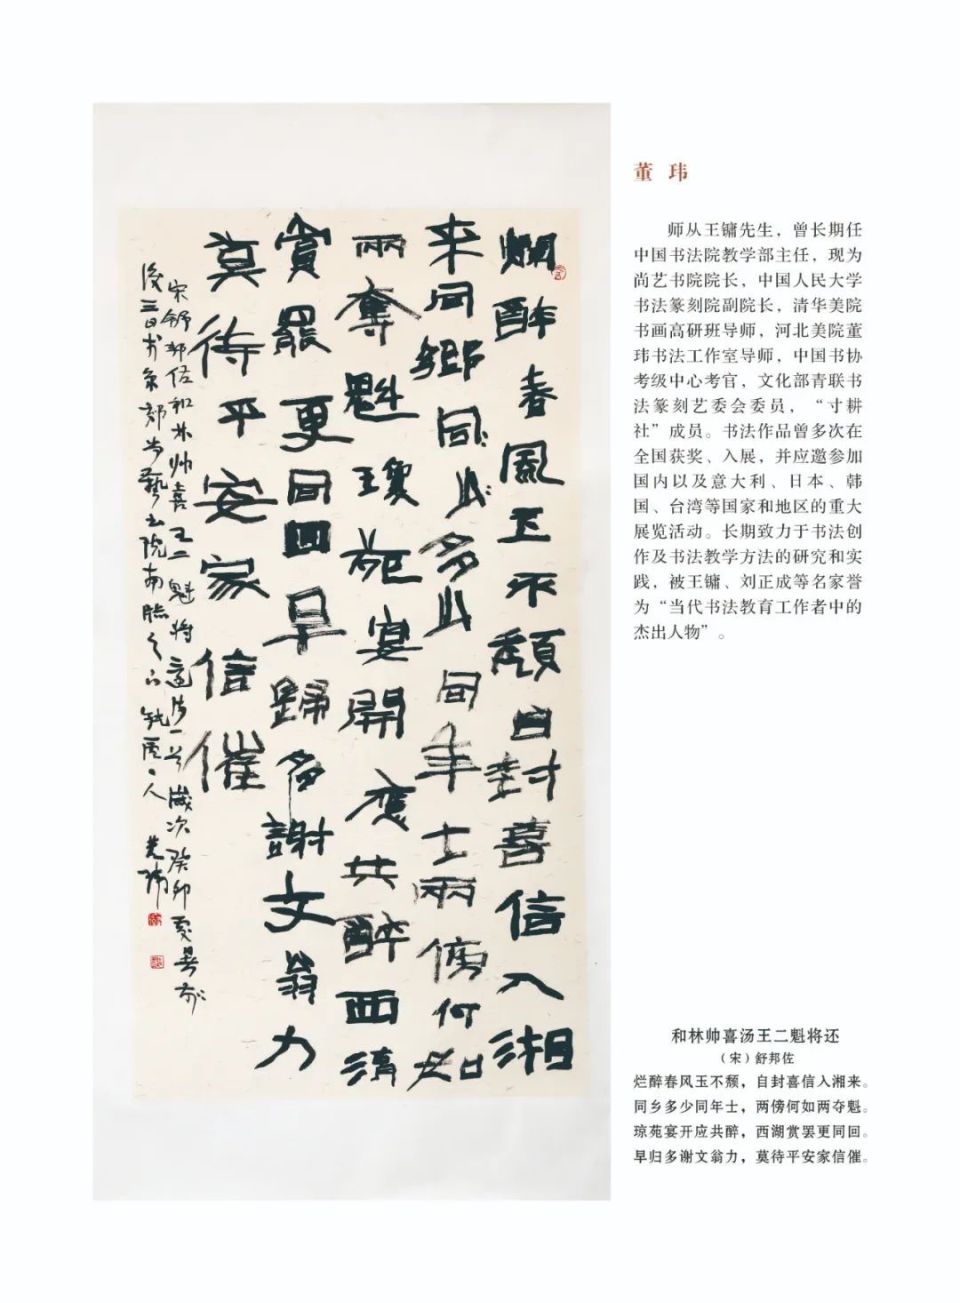 爛醉春風玉不頹自封喜信入湘
来同鄉同少多少同年士兩傍何如
兩奪魁瓊苑宴開應共醉西湖
賞罷更同回早歸多謝文翁力
莫待平安家信催
宋舒邦佐和林帅喜王二魁将還诗一首歲次癸卯夏暑前
後三日于京郊尚藝書院南牖之下 人董瑋
董 玮
师从王镛先生，曾长期任
中国书法院教学部主任，现为
尚艺书院院长，中国人民大学
书法篆刻院副院长，清华美院
书画高研班导师，河北美院董
玮书法工作室导师，中国书协
考级中心考官，文化部青联书
法篆刻艺委会委员，“寸耕
社”成员。书法作品曾多次在
全国获奖、入展，并应邀参加
国内以及意大利、日本、韩
国、台湾等国家和地区的重大
展览活动。长期致力于书法创
作及书法教学方法的研究和实
践，被王镛、刘正成等名家誉
为“当代书法教育工作者中的
杰出人物”。
和林帅喜汤王二魁将还
（宋）舒邦佐
烂醉春风玉不颓，自封喜信入湘来。
同乡多少同年士，两傍何如两夺魁。
琼苑宴开应共醉，西湖赏罢更同回。
早归多谢文翁力，莫待平安家信催。